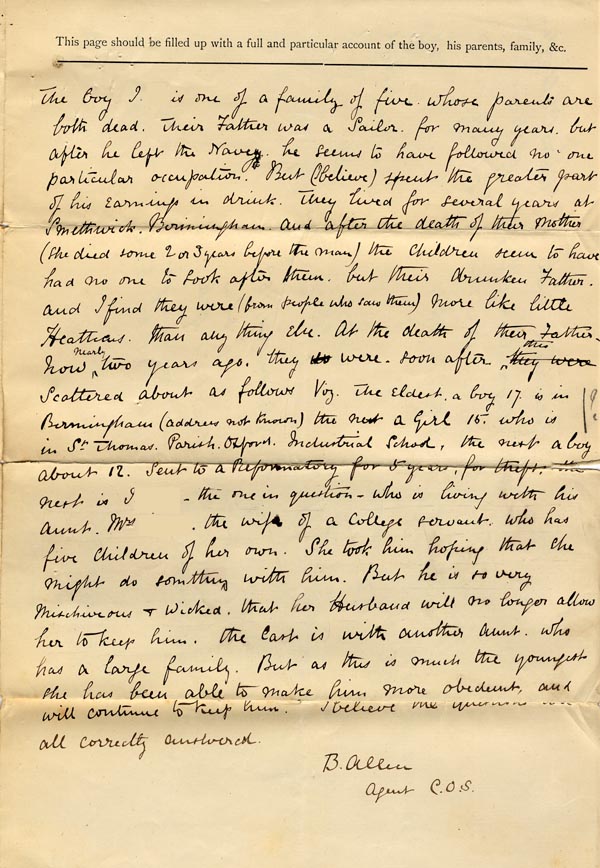 This page should be filled up with a full and particular account of the boy, his parents, family, &c.
The boy I. is one of a family of five. whose parents are
both dead. Their Father was a Sailor. for many years. but
after he left the Navey. he seems to have followed no one
particular occupation. But (believe) spent the greater part
of his Earnings in drink. They lived for several years at
Smethwick. Bermingham. and after the death of their Mother
(she died some 2 or 3 years before the man) the Children seem to have
had no one to look after them. but their drunken Father.
and I find they were (from people who saw them) More like little
Heathens. than any thing Else. At the death of their Father.
Now nearly two years ago. they were. soon after this they were
Scattered about as follows Viz. The Eldest. a boy 17. is in
Bermingham (address not known) the next a Girl 15. who is
in St Thomas. Parish. Oxford. Industrial School, the next a boy
about 12. Sent to a Reformatory for 5 years, for theft. the
next is I - the one in question - who is living with his
Aunt. Mrs . the wife of a College servant. who has
five Children of her own. She took him hoping that she
might do somthing with him. But he is so very
Mischiveous & Wicked. that her Husband will no longer allow
her to keep him. the Last is with another Aunt. who
has a large family. But as this is much the youngest
she has been able to make him more obedient, and
will continue to keep him. I believe the questions
all correctly answered.
B. Allen
Agent C.O.S.